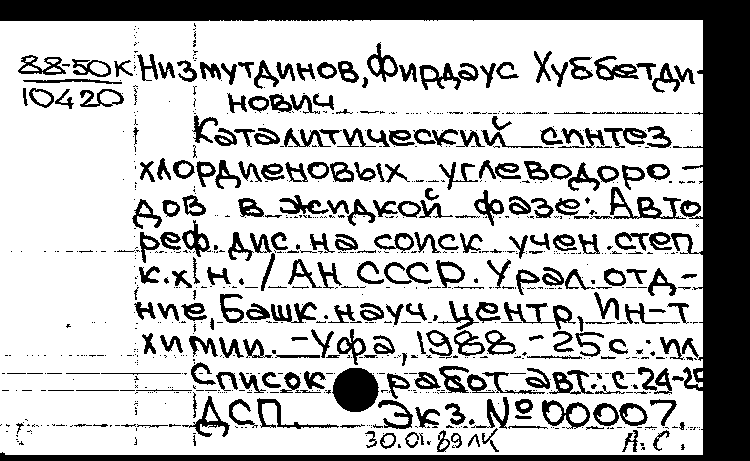 88-50К Низмутдинов, Фирдаус Хуббетди-
10420 нович.
Каталитический синтез
хлордиеновых углеводоро-
дов в жидкой фазе: Авто
реф. дис. на соиск. учен. степ
к.х.н. / АН СССР. Урал. отд-
ние, Башк. науч. центр, Ин-т
химии. - Уфа, 1988. - 25 с.: ил
Список работ авт.: с. 24-25
ДСП. Экз. № 00007.
30.01.89 ЛК А.С.